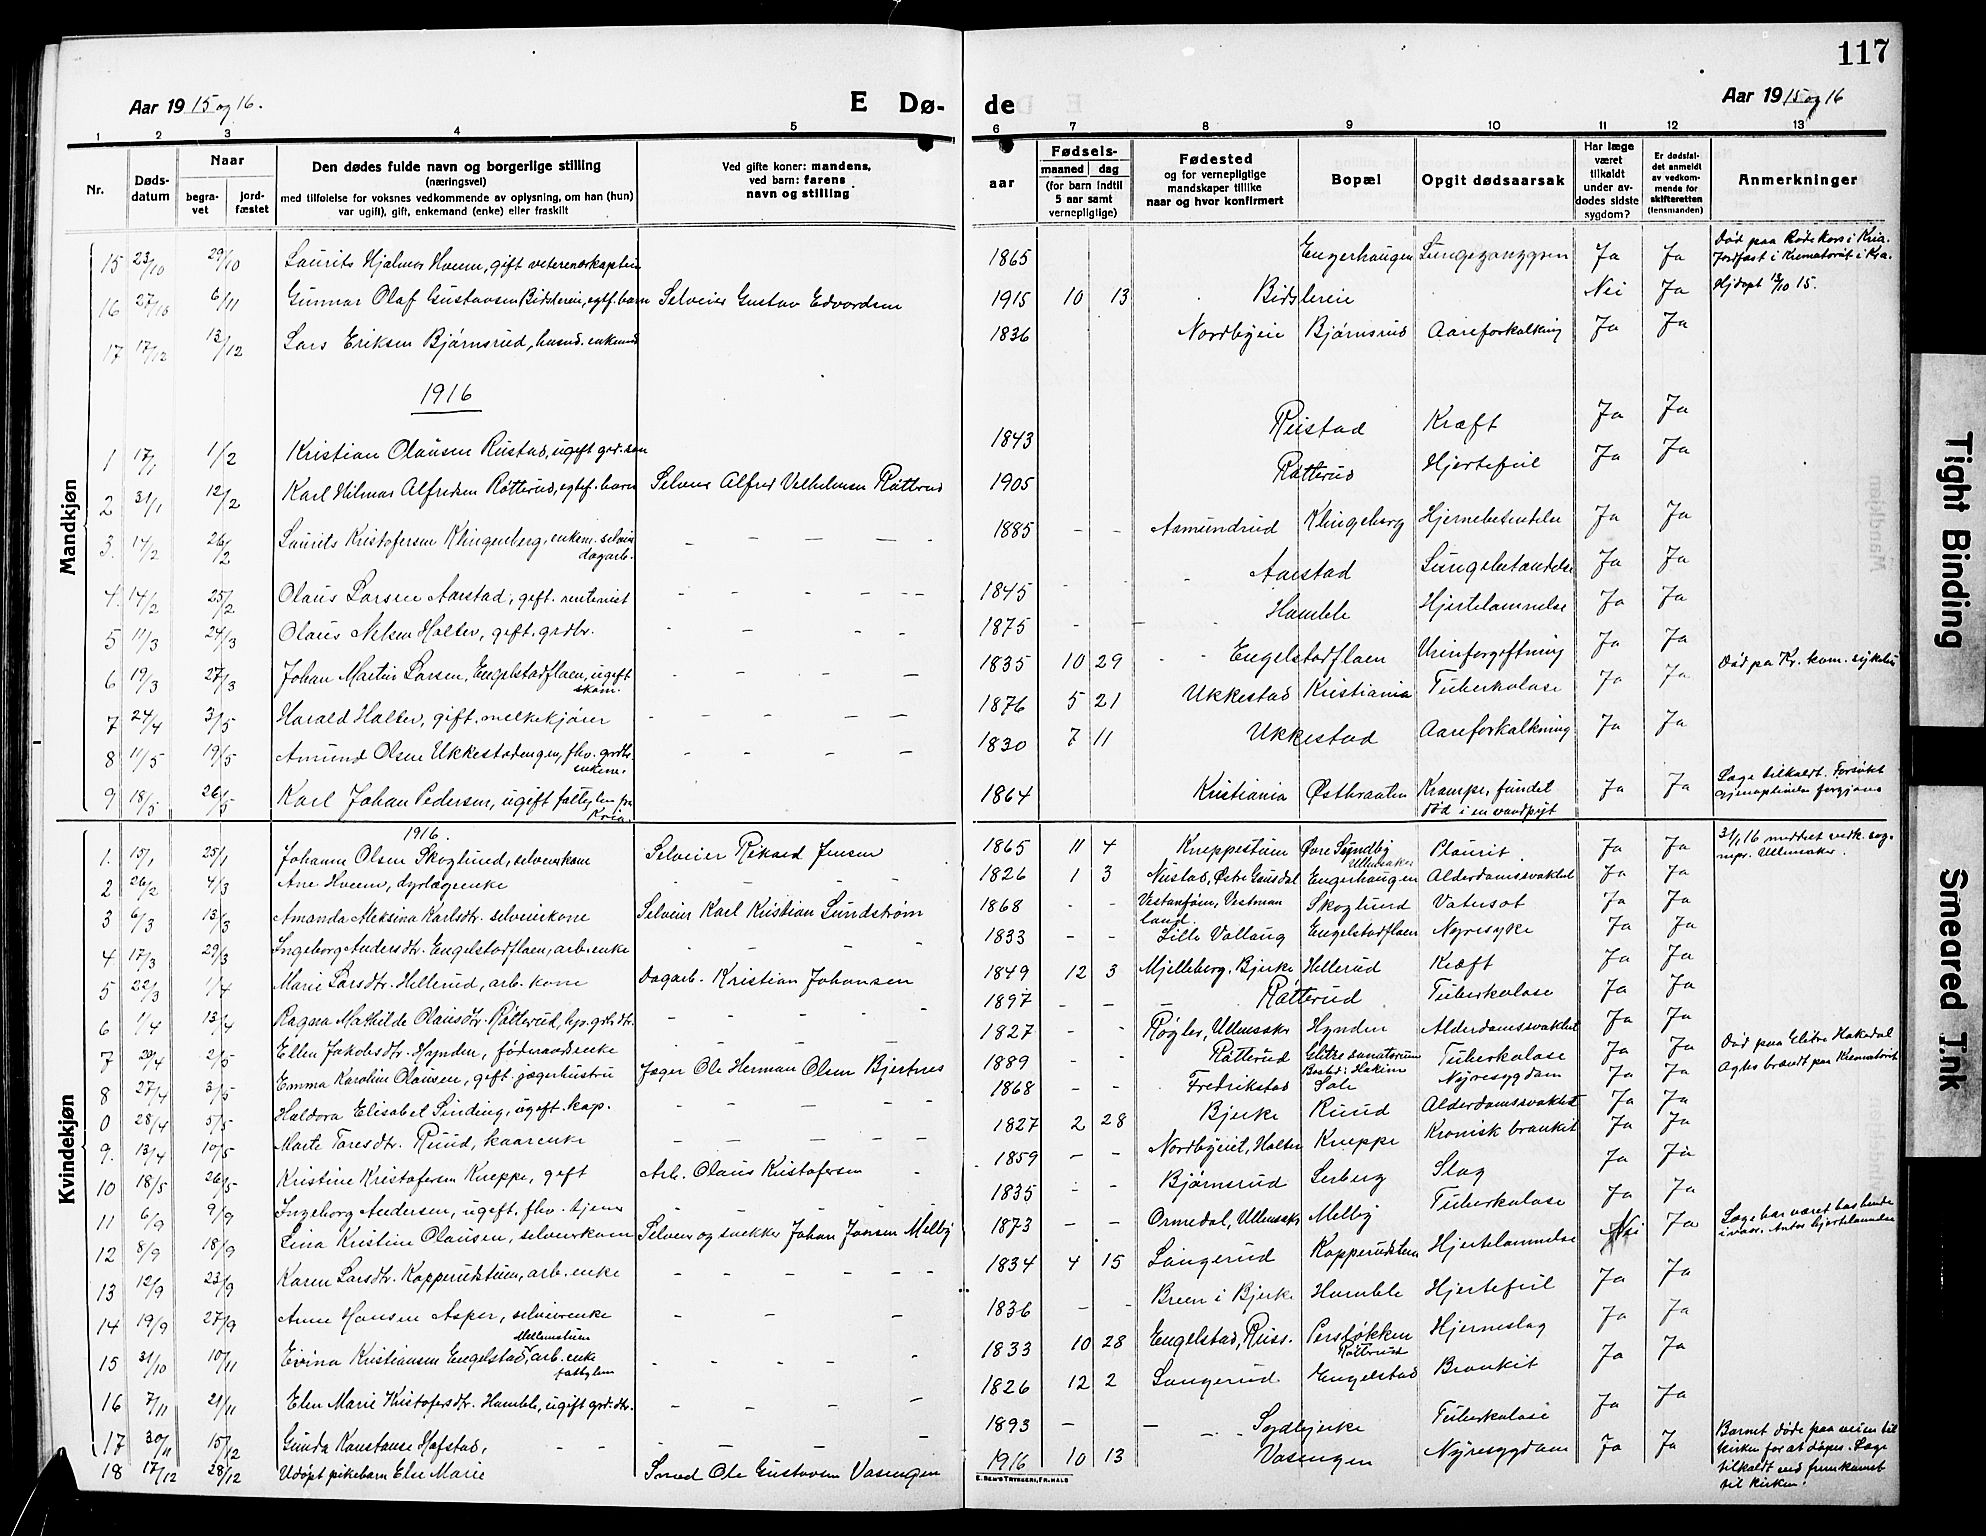 117
Aar 1915 og 16.
E Dø-
de
Aar 1915 og 16
1 2 3 4 5 6 7 8 9 10 11 12 13
Nr.
Døds-
datum
Naar
begra-
vet
jord-
fæstet
Den dødes fulde navn og borgerlige stilling
(næringsvei)
med tilføielse for voksnes vedkommende av oplysning, om han (hun)
var ugift), gift, enkemand (enke) eller fraskilt
Ved gifte koner: mandens,
ved barn: farens
navn og stilling
aar
Fødsels-
maaned dag
(for barn indtil
5 aar samt
vernepligtige)
Fødested
og for vernepligtige
mandskaper tillike
naar og hvor konfirmert
Bopæl
Opgit dødsaarsak
Har læge
været
tilkaldt
under av-
dødes sidste
sygdom?
Er dødsfal-
det anmeldt
av vedkom-
mende for
skifteretten
(lensmanden)
Anmerkninger
Mandkjøn
15 23/10 29/10 Laurits Hjalmar Hveem, gift veterinærkaptein 1865 Engerhaugen Lungeganggren Ja Ja Død paa Røde Kors i Kria.
Jordfæst i Krematoriet i Kra.
16 27/10 6/11 Gunnar Olaf Gustavsen Bidslereie, egtef. barn Selveier Gustav Edvardsen 1915 10 13 Bidslereie Nei Ja Hjdøpt 13/10 15.
17 17/12 13/12 Lars Eriksen Bjørnsrud, husmd. enkemd 1836 Nordbyeie Bjørnsrud Aareforkalkning Ja Ja
1916
1 17/1 1/2 Kristian Olausen Rustad, ugift grd. søn 1843 Rustad Kræft Ja Ja
2 31/1 12/2 Karl Hilmar Alfredsen Råtterud, egtef. barn Selveier Alfred Vilhelmsen Råtterud 1905 Råtterud Hjertefeil Ja Ja
3. 14/2 26/2 Laurits Kristofersen Klingenberg, enkem. selveier
dagarb. 1885 - - Aamundrud Klingeberg Hjernebetendelse Ja Ja
4. 14/2 25/2 Olaus Larsen Aarstad, gift. rentenist 1845 - - Aarstad Lungebetændelse Ja Ja
5 11/3 24/3 Olaus Nilsen Holter, gift. grdbr. 1875 - Humble Hjertelammelse Ja Ja
6 19/3 27/3 Johan Martin Larsen, Engelstadflaen, ugift
skom. 1835 10 29 Engelstadflaen Urinforgiftning Ja Ja
7 24/4 3/5 Harald Holter, gift. melkekjører 1876 5 21 Ukkestad Kristiania Tuberkulose Ja Ja Død paa Kr. kom. sykehus
8 11/5 19/5 Amund Olsen Ukkestadengen, fhv. grdbr.
enkem. 1830 7 11 Ukkestad Aareforkalkning Ja Ja
9 18/5 26/5 Karl Johan Pedersen, ugift fattiglem fra
Kria. 1864 Kristiania Østbraaten Krampe, fundet
død i en vandpyt Ja Ja Læge tilkaldt. Forsøkt
gjenoplivelse forgjæves
Kvindekjøn
1916.
1. 15/1 25/1 Johanne Olsen Skoglund, selveierkone Selveier Rikard Jensen 1865 11 4 Kneppestuen Øvre Sundby
Ullensaker Pleurit. Ja Ja 31/1 16 meddelt vedk. sog-
nepr. Ullensaker.
2 26/2 4/3 Ane Hveem, dyrlægeenke 1826 1 3 Nustad, Østre Gausdal Engerhaugen Alderdomssvakhet Ja Ja
3 6/3 13/3 Amanda Aleksina Karlsdtr. selveierkone Selveier Karl Kristian Lundstrøm 1868 - - Vestanfåen, Vestman
land. Skoglund Vatersot Ja Ja
4 17/3 29/3 Ingeborg Andersdtr. Engelstadflaen, arb. enke 1833 - - Lille Vallaug Engelstadflaen Nyresyke Ja Ja
5 22/3 1/4 Marie Larsdtr. Hellerud, arb. kone Dagarb. Kristian Johansen 1849 12 3 Mjelleberg, Bjerke Hellerud Kræft Ja Ja
6 1/4 13/4 Ragna Mathilde Olausdtr. Råtterud, hjv. grdbr. dtr. 1897 - - Råtterud Tuberkulose Ja Ja
7 20/4 2/5 Ellen Jakobsdtr. Hynden, føderaadsenke 1827 - - Røgler, Ullensaker Hynden Alderdomssvakhet Ja Ja
8 27/4 3/5 Emma Karoline Olausen, gift. jægerhustru Jæger Ole Herman Olsen Bjertnes 1889 Råtterud Glitre sanatorium
Bosted: Hakim Tuberkulose Ja Ja Død paa Glitre Hakedal
0 28/4 5/5 Haldora Elisabet Sinding, ugift. kap. 1868 - - Fredrikstad Sole Nyresygdom Ja Ja Agtes brændt paa Krematoriet
9. 13/4 10/5 Marte Taresdtr. Ruud, kaarenke 1827 2 28 Bjerke Ruud Alderdomssvakhet Ja Ja
10 18/5 26/5 Kristine Kristofersen Kneppe, gift Arb. Olaus Kristofersen 1859 - - Nordbyeiet, Holter Kneppe Kronisk bronkit Ja Ja
11 6/9 9/9 Ingeborg Andersen, ugift. fhv. tjener 1835 - - Bjørnsrud Lerberg Slag Ja Ja
12 8/9 18/9 Lina Kristine Olausen, selveierkone Selveier og snekker Johan Jonsen Melby 1873 - - Ormedal, Ullensaker Melby Tuberkulose Ja Ja
13 12/9 23/9 Karen Larsdtr. Kopperudstuen, arb. enke 1834 4 15 Langerud Kopperudstuen Hjertelammelse Nei Ja Læge har været hos hende
i vaar. Antar hjertelammelse
14 19/9 27/9 Anne Hansen Asper, selveierenke 1836 - - Breen i Bjerke Humble Hjertefeil Ja Ja
15 31/10 10/11 Eivina Kristiansen Engelstad, arb. enke
Mellemstuen
fattiglem 1833 10 28 Engelstad, Russ. Persløkken
Råtterud Hjerneslag Ja Ja
16 7/11 21/11 Elen Marie Kristofersdtr. Humble, ugift grd. dtr. 1826 12 2 Langerud Engelstad Bronkit Ja Ja
17 30/11 15/12 Gunda Konstanse Hofstad, 1893 - - Sydbjerke Tuberkulose Ja Ja
18 17/12 28/12 Udøpt pikebarn Else Marie Smed Ole Gustavsen Vasengen 1916 10 13 Vasengen Nyresygdom Ja Ja Barnet døde paa veien til
kirken for at døpes. Læge
tilkaldt ved fremkomst
til kirken.
E. SEM'S TRYKKERI, FR.HALD
Tight Binding
Smeared Ink